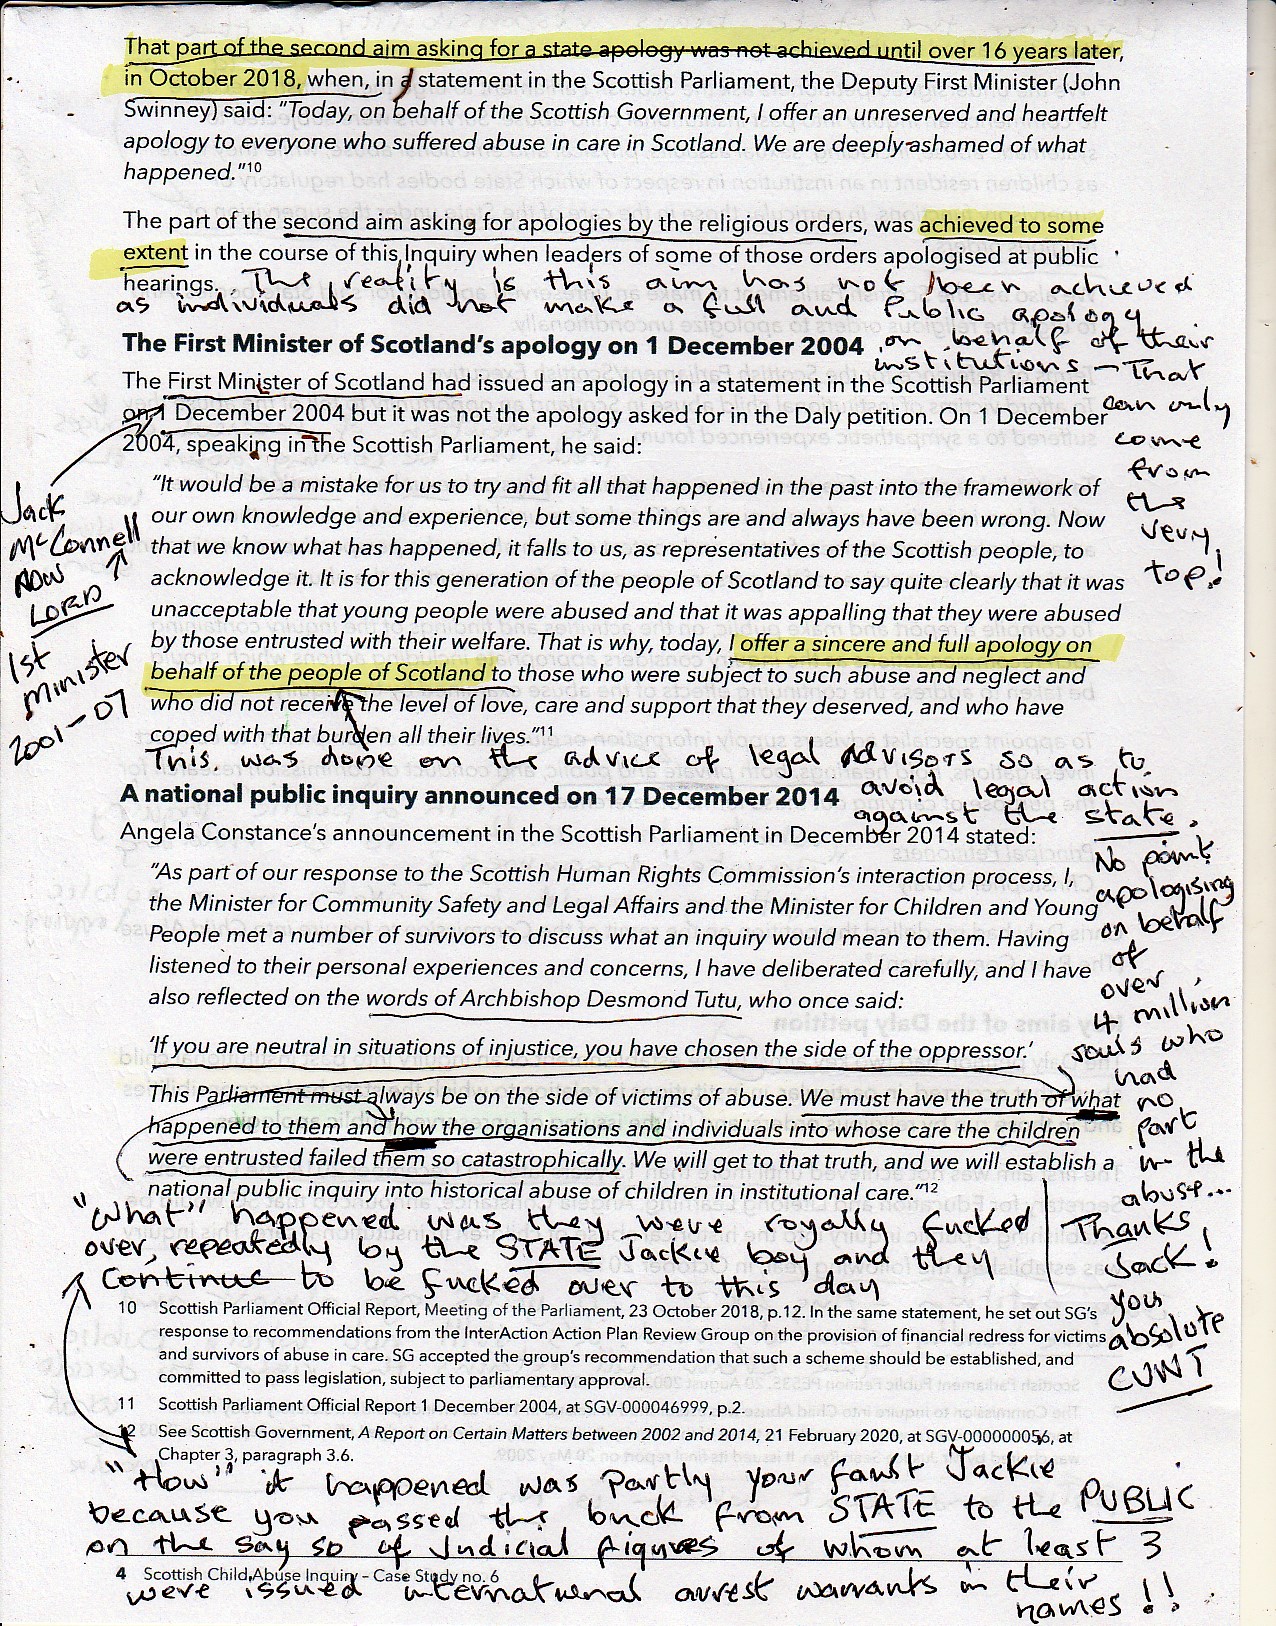 That part of the second aim asking for a state apology was not achieved until over 16 years later,
in October 2018, when, in a statement in the Scottish Parliament, the Deputy First Minister (John
Swinney) said: "Today, on behalf of the Scottish Government, I offer an unreserved and heartfelt
apology to everyone who suffered abuse in care in Scotland. We are deeply ashamed of what
happened."10
The part of the second aim asking for apologies by the religious orders, was achieved to some
extent in the course of this Inquiry when leaders of some of those orders apologised at public
hearings.
The reality is this aim has not been achieved
as individuals did not make a full and Public apology
on behalf of their
institutions – That
can only
come
from
the
very
top!
The First Minister of Scotland's apology on 1 December 2004
The First Minister of Scotland had issued an apology in a statement in the Scottish Parliament
on 1 December 2004 but it was not the apology asked for in the Daly petition. On 1 December
2004, speaking in the Scottish Parliament, he said:
Jack
McConnell
Now
LORD
1st
Minister
2001-07
"It would be a mistake for us to try and fit all that happened in the past into the framework of
our own knowledge and experience, but some things are and always have been wrong. Now
that we know what has happened, it falls to us, as representatives of the Scottish people, to
acknowledge it. It is for this generation of the people of Scotland to say quite clearly that it was
unacceptable that young people were abused and that it was appalling that they were abused
by those entrusted with their welfare. That is why, today, I offer a sincere and full apology on
behalf of the people of Scotland to those who were subject to such abuse and neglect and
who did not receive the level of love, care and support that they deserved, and who have
coped with that burden all their lives."11
This was done on the advice of legal Advisors so as to
avoid legal action
against the state.
No point
apologising
on behalf
of
over
4 million
souls who
had
no
part
in the
abuse...
Thanks
Jack!
you
absolute
CUNT
A national public inquiry announced on 17 December 2014
Angela Constance's announcement in the Scottish Parliament in December 2014 stated:
"As part of our response to the Scottish Human Rights Commission's interaction process, I,
the Minister for Community Safety and Legal Affairs and the Minister for Children and Young
People met a number of survivors to discuss what an inquiry would mean to them. Having
listened to their personal experiences and concerns, I have deliberated carefully, and I have
also reflected on the words of Archbishop Desmond Tutu, who once said:
'If you are neutral in situations of injustice, you have chosen the side of the oppressor.'
This Parliament must always be on the side of victims of abuse. We must have the truth of what
happened to them and how the organisations and individuals into whose care the children
were entrusted failed them so catastrophically. We will get to that truth, and we will establish a
national public inquiry into historical abuse of children in institutional care."12
"What" happened was they were royally fucked
over, repeatedly by the STATE Jackie boy and they
Continue to be fucked over to this day
10 Scottish Parliament Official Report, Meeting of the Parliament, 23 October 2018, p.12. In the same statement, he set out SG's
response to recommendations from the InterAction Action Plan Review Group on the provision of financial redress for victims
and survivors of abuse in care. SG accepted the group's recommendation that such a scheme should be established, and
committed to pass legislation, subject to parliamentary approval.
11 Scottish Parliament Official Report 1 December 2004, at SGV-000046999, p.2.
12 See Scottish Government, A Report on Certain Matters between 2002 and 2014, 21 February 2020, at SGV-000000056, at
Chapter 3, paragraph 3.6.
"How" it happened was Partly your fault Jackie
because you passed the buck from STATE to the PUBLIC
on the say so of Judicial figures of whom at least 3
4 Scottish Child Abuse Inquiry – Case Study no. 6
were issued international arrest warrants in their
names!!